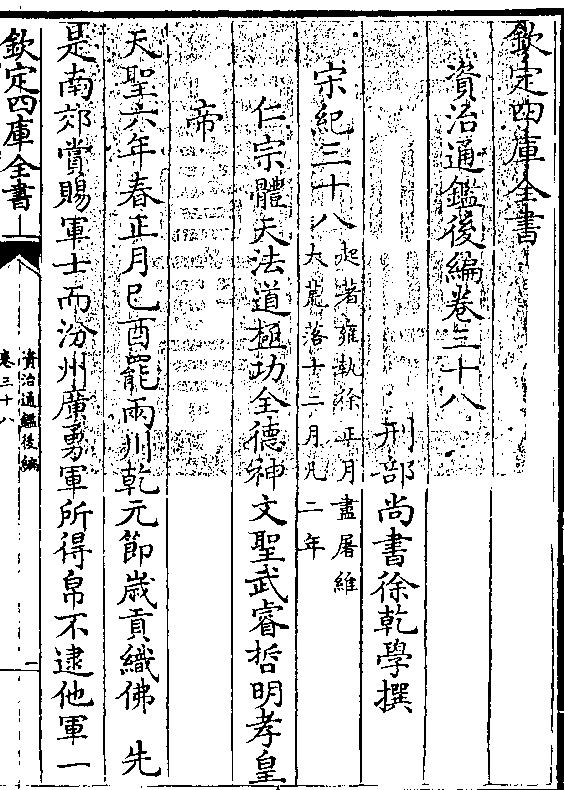 欽定四庫全書
資治通鑑後編卷三十八
刑部尚書徐乾學撰
宋紀三十八
起著雍執徐正月盡屠維
大荒落十二月凡二年
仁宗體天法道極功全德神文聖武睿哲明孝皇
帝
天聖六年春正月己酉罷兩川乾元節歲貢織佛 先
是南郊賞賜軍士而汾州廣勇軍所得帛不逮他軍一
欽定四庫全書
資治通鑑後編
卷三十八
一